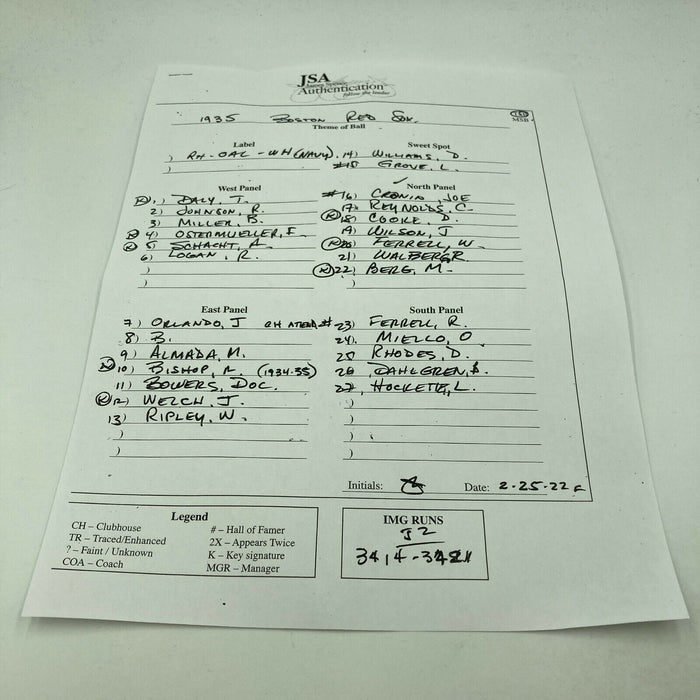 JSA
James Spence
Authentication
follow the leader
1935 BOSTON RED SOX
MSB
Theme of Ball
Label
) RH-OAL-WH (NAVY)
Sweet Spot
14) WILLIAMS, D.
GROVE, L.
West Panel
K 1) DALY, T.
2) JOHNSON, R.
3) MILLER, B.
4) OSTERMUELLER, F.
K 5 SCHACHT, A.
6) LOGAN, R.
)
)
North Panel
#16) CRONIN, JOE
17) REYNOLDS, C.
K 18) COOKE D.
19) WILSON, J
FERRELL, W.
21) WALBERG R
K 22) BERG, M.
)
East Panel
7) ORLANDO, J CH ATEND
8) B.
9) ALMADA, M.
10) BISHOP, (1934-35)
11) BOWERS, DOC.
K 12) WELCH, J.
13) RIPLEY, W.
)
)
)
South Panel
#23) FERRELL, R.
24) MIELLO, O
25 RHODES, D.
26 DAHLGREN, B.
27, HOCKETTE, L.
)
)
)
)
Initials:
Date: 2-25-22
Legend
CH – Clubhouse
TR – Traced/Enhanced
? – Faint / Unknown
COA – Coach
# – Hall of Famer
2X – Appears Twice
K – Key signature
MGR – Manager
IMG RUNS
J2